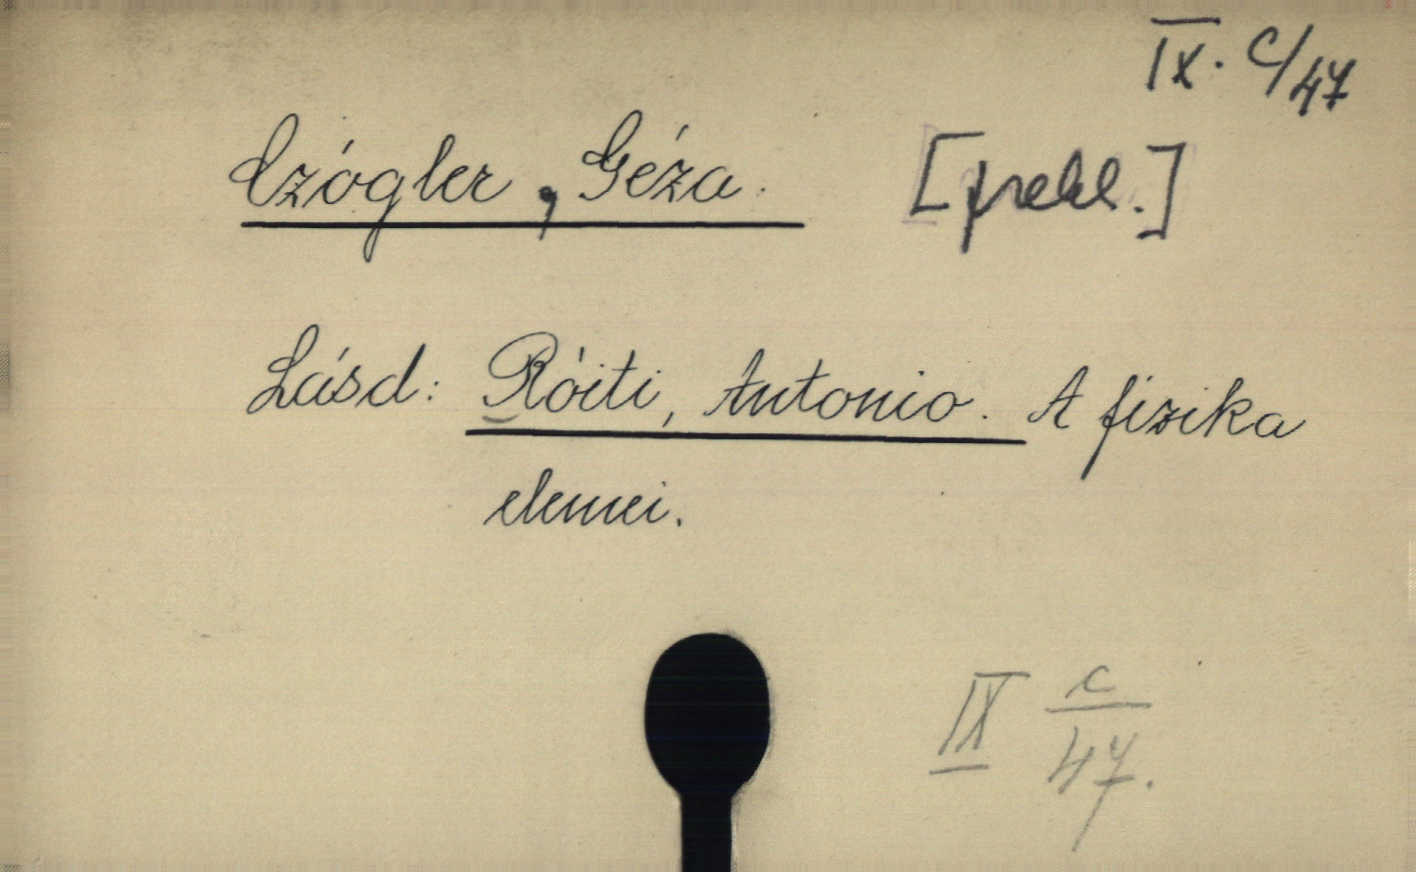 IX. C/47
Czógler, Géza. [prekl.]
Lásd: Róiti, Antonio. A fizika
elemei.
IX c/47.